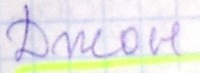 Джон